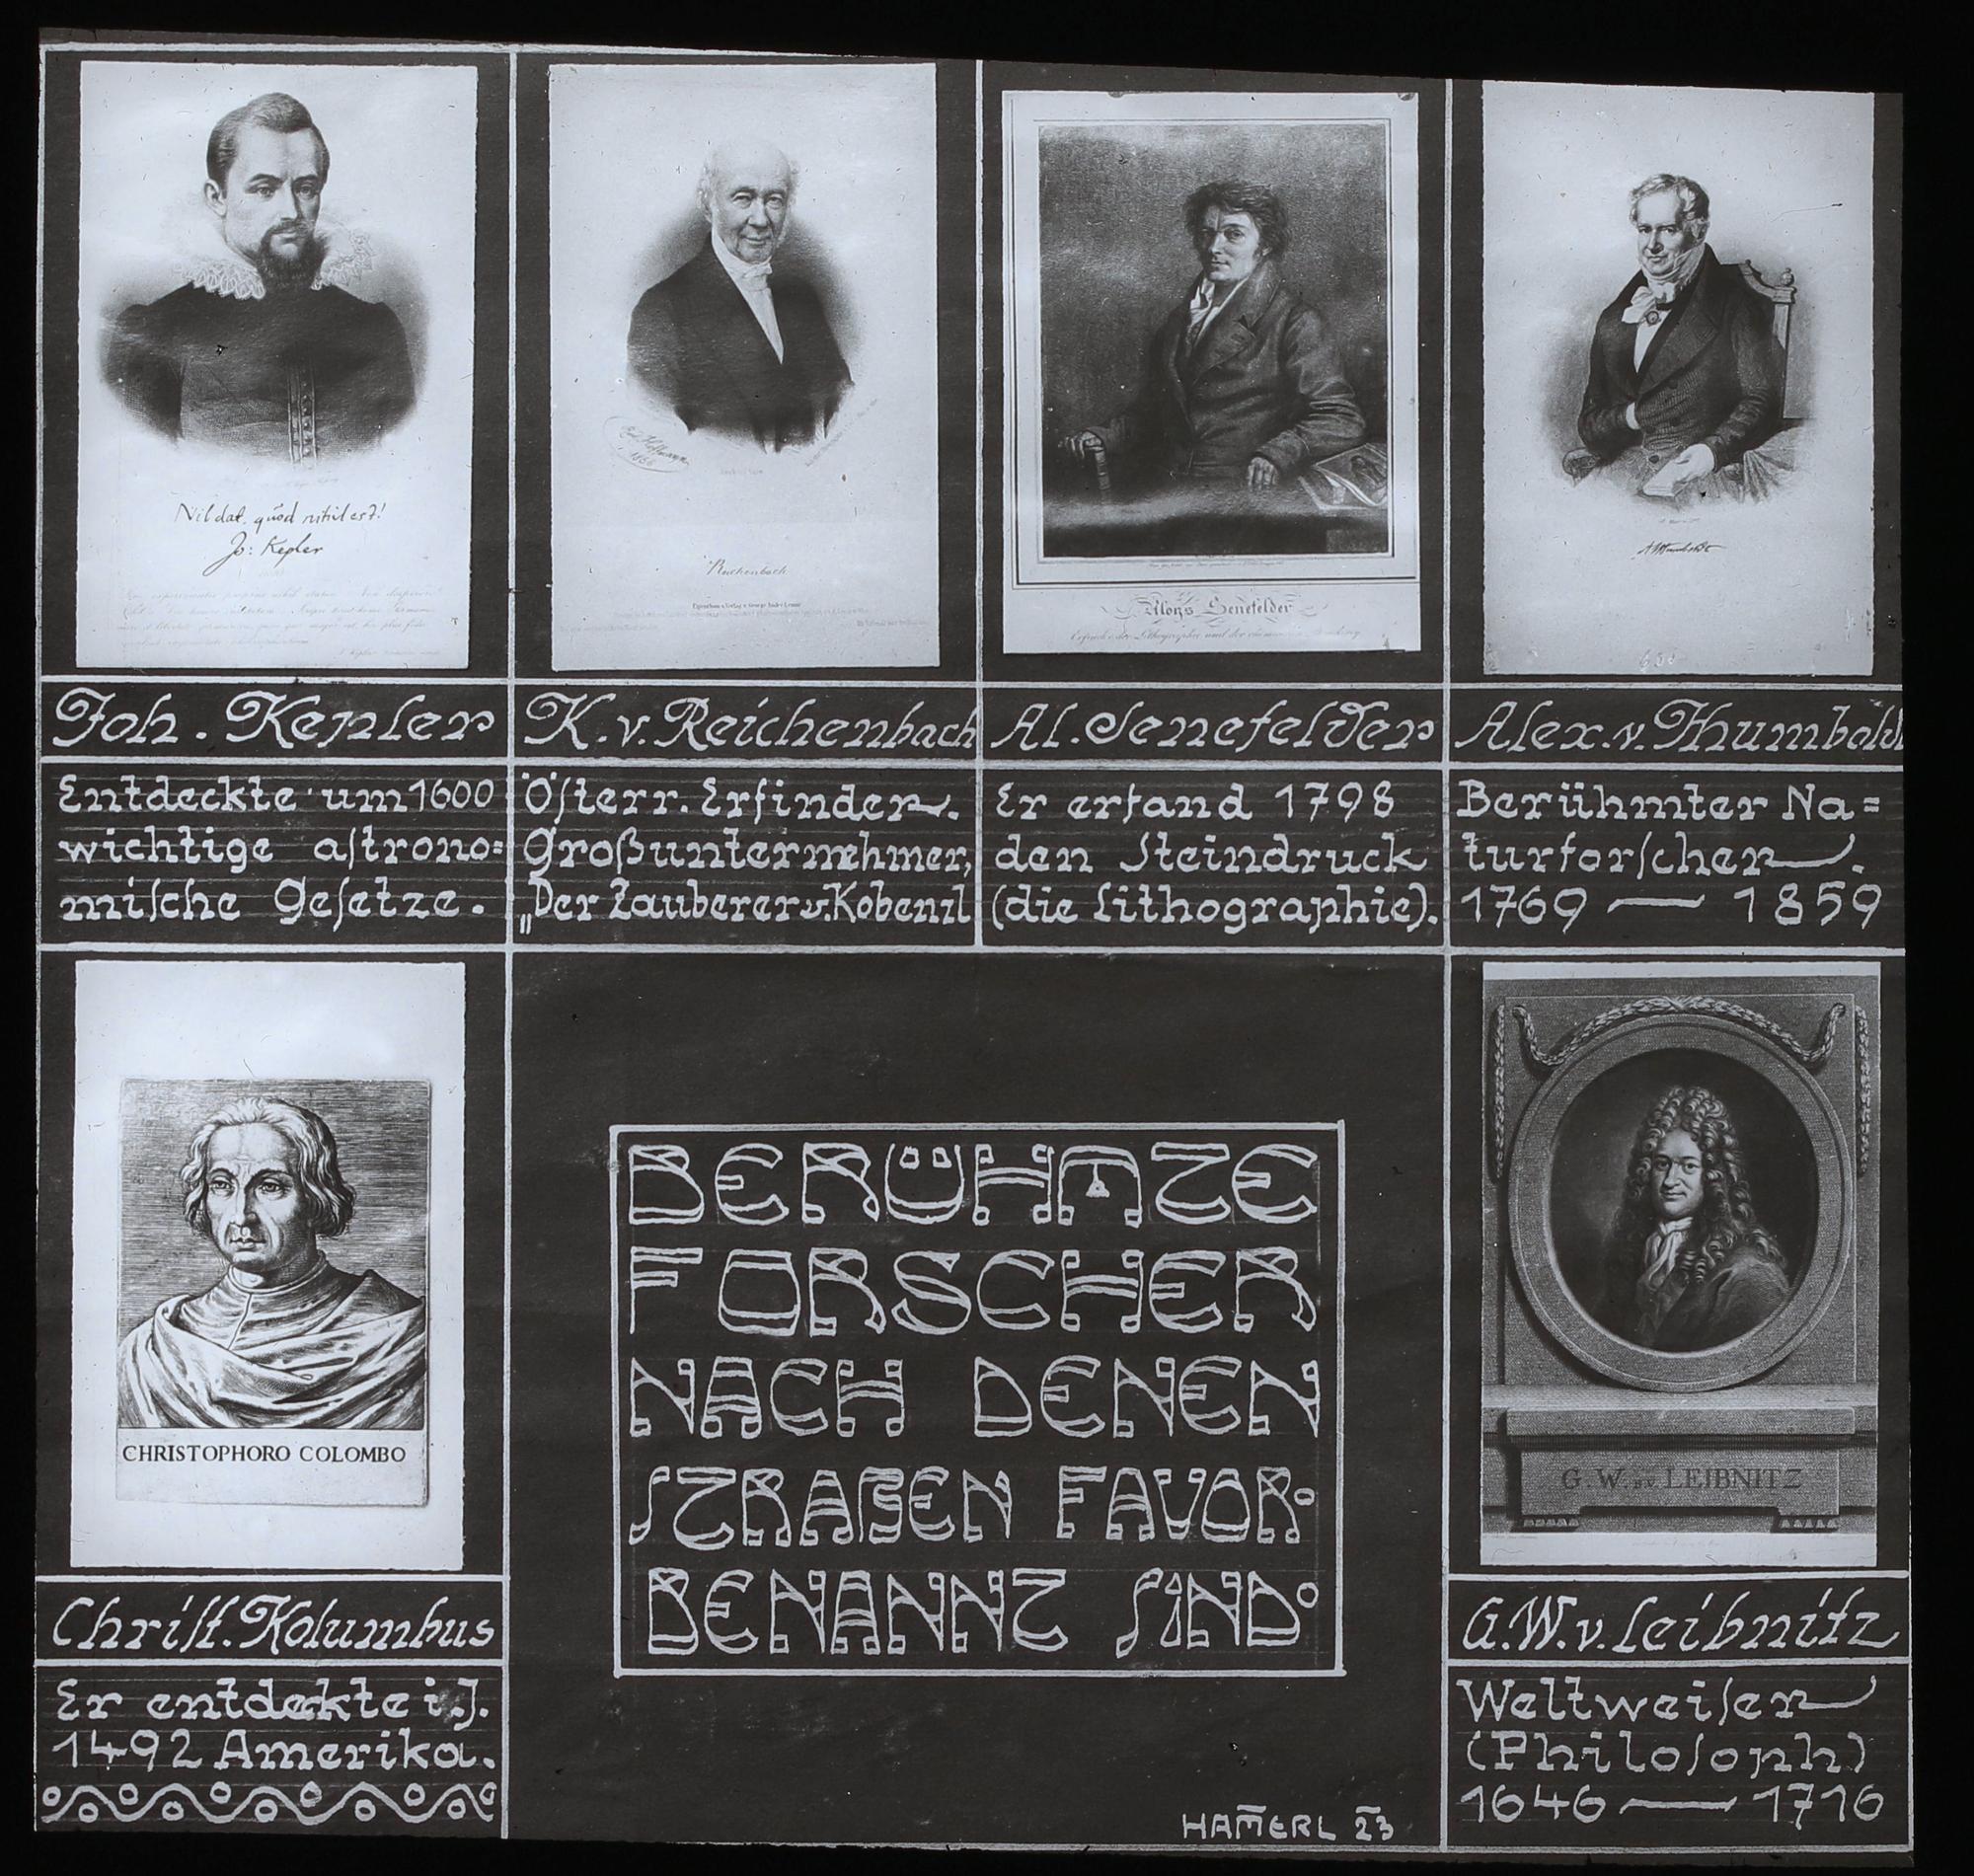 Nil dat, quod nihil est!
Jo: Kepler
Reichenbach
Aloys Senefelder
Joh. Kepler
Entdeckte um 1600
wichtige aſtrono=
miſche Geſetze.
K. v. Reichenbach
Öſterr. Erfinder.
Großunternehmer,
„Der Zauberer v. Kobenzl
Al. Senefelder
Er erfand 1798
den Steindruck
(die Lithographie).
Alex. v. Humboldt
Berühmter Na=
turforſcher.
1769 — 1859
CHRISTOPHORO COLOMBO
Chriſt. Kolumbus
Er entdeckte i. J.
1492 Amerika.
BERÜHMTE
FORSCHER
NACH DENEN
STRAßEN FAVOR.
BENANNT SIND.
HAM̅ERL 23
G. W. B. V. LEIBNITZ
G. W. v. Leibnitz
Weltweiſer
(Philoſoph)
1646 — 1716